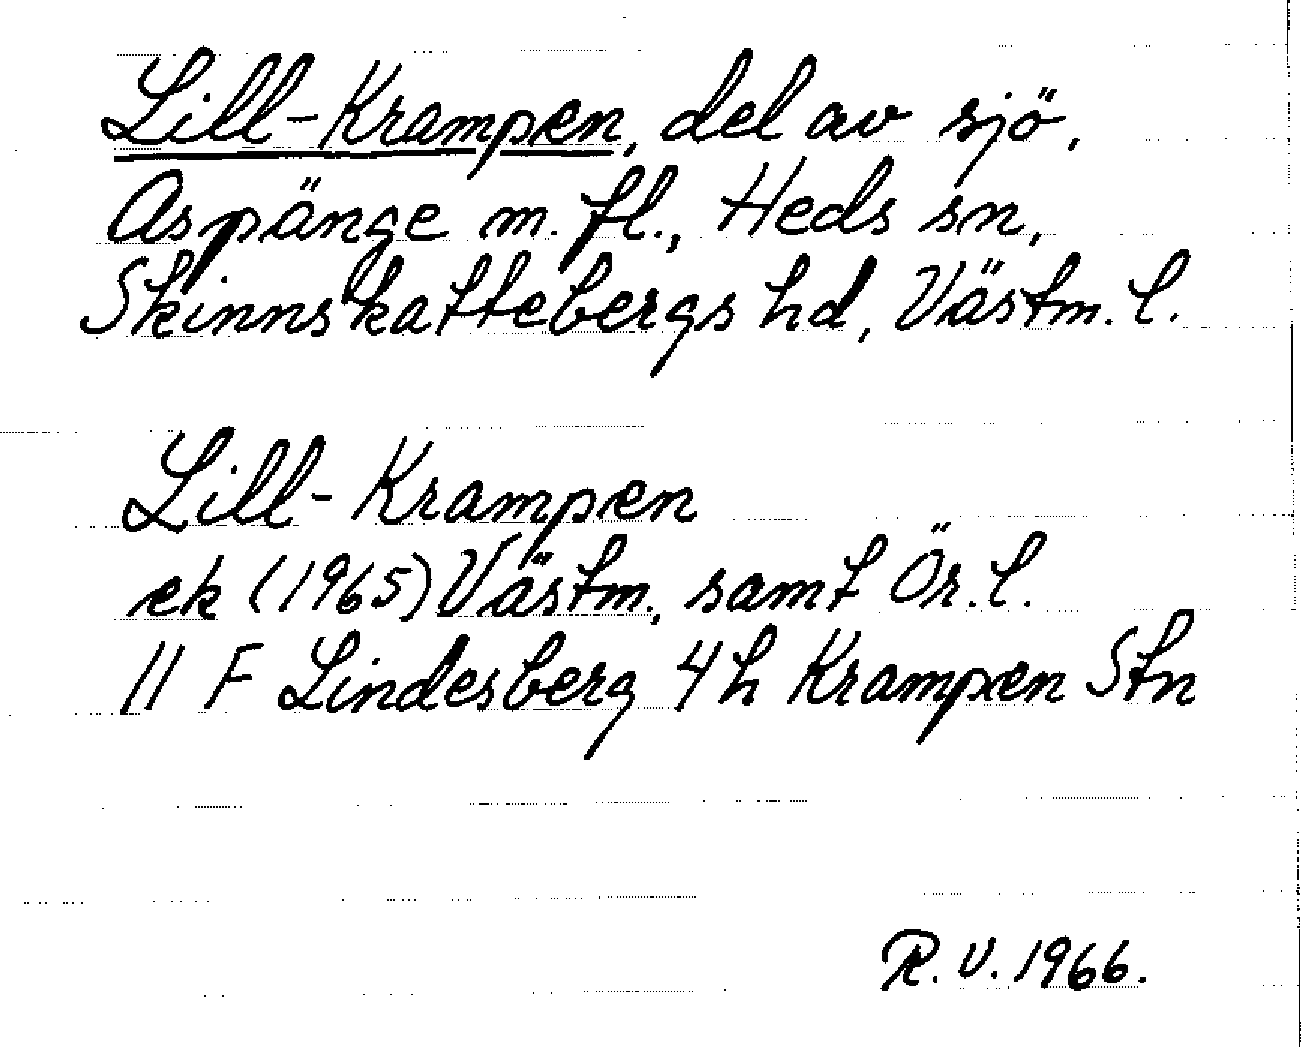 Lill-Krampen, del av sjö,
Aspänge m. fl., Heds sn,
Skinnskattebergs hd, Västm. l.
Lill-Krampen
ek (1965) Västm., samt Ör. l.
11 F Lindesberg 4h Krampen Stn
R.V. 1966.